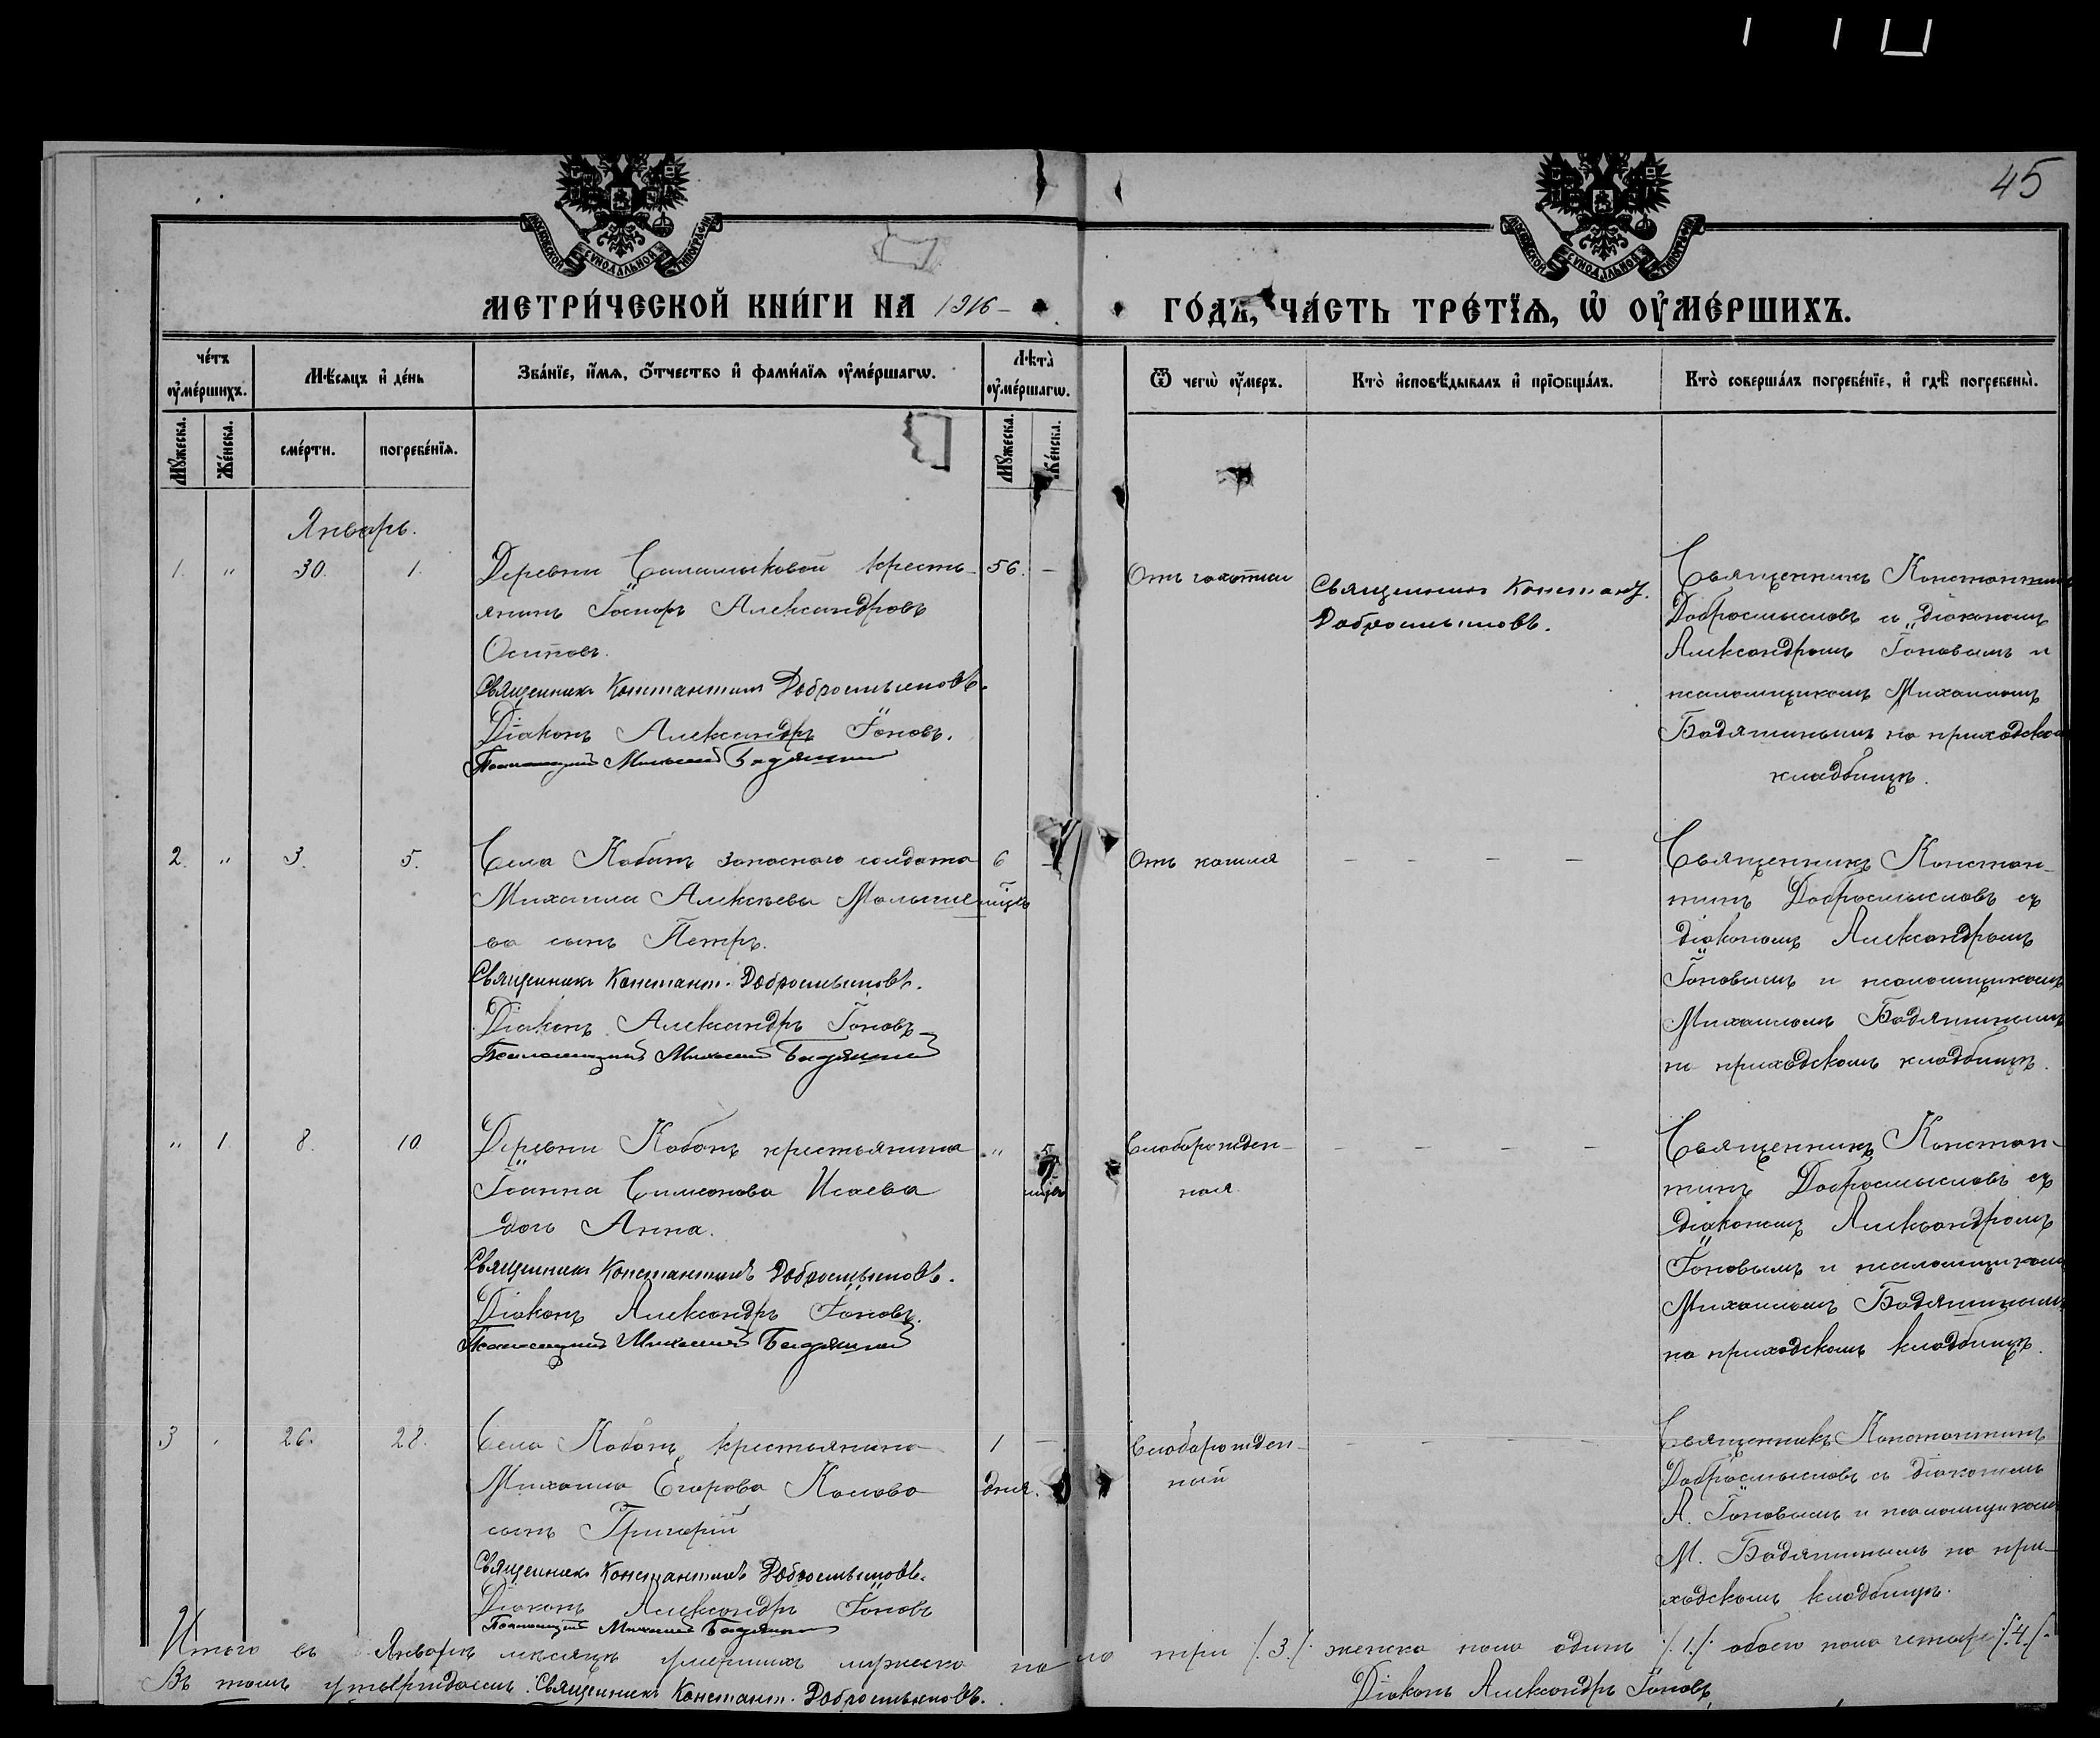 45
МОСКОВСКОЙ СѴНОДАЛЬНОЙ ТИПОГРАФИИ
МОСКОВСКОЙ СѴНОДАЛЬНОЙ ТИПОГРАФИИ
МЕТРИ́ЧЕСКОЙ КНИ́ГИ НА 1916 –
ГО́ДЪ, ЧА́СТЬ ТРЕ́ТЇѦ, Ѡ҆ ОУ҆МЕ́РШИХЪ.
че́тъ оу҆ме́ршихъ.
Мѣ́сяцъ и҆ де́нь
Зва́нїе, и҆́мѧ, ѻ҆́тчество и҆ фами́лїѧ оу҆ме́ршагѡ.
Лѣ́та оу҆ме́ршагѡ.
Ѿ чегѡ̀ оу҆́меръ.
Кто̀ и҆сповѣ́дывалъ и҆ прїѡбща́лъ.
Кто̀ соверша́лъ погребе́нїе, и҆ гдѣ̀ погребены̀.
Мꙋ́жеска.
Же́нска.
сме́рти.
погребе́нїѧ.
Мꙋ́жеска.
Же́нска.
Январь.
1. " 30. 1.
Деревни кресть-
янинъ Александровъ
Осиповъ.
Священникъ Константинъ Добросмысловъ.
Діаконъ Александръ Іоновъ.
Псаломщикъ Михаилъ Бадянинъ
56. –
Отъ чахотки
Священникъ Констант.
Добросмысловъ.
Священникъ Константинъ
Добросмысловъ съ діакономъ
Александромъ Іоновымъ и
псаломщикомъ Михаиломъ
Бодянинымъ на приходском
кладбищѣ.
2. " 3. 5.
Села Кабанъ запаснаго солдата
Михаила Алексѣева Малыше
ва сынъ Петръ.
Священникъ Констант. Добросмысловъ.
Діаконъ Александръ Іоновъ
Псаломщикъ Михаилъ Бадянинъ
6
мѣсяцъ
Отъ кашля
– – – –
Священникъ Констан-
тинъ Добросмысловъ съ
діакономъ Александромъ
Іоновымъ и псаломщикомъ
Михаиломъ Бодянинымъ
на приходскомъ кладбищѣ.
" 1. 8. 10
Деревни Кабанъ крестьянина
Іоанна Симонова Исаева
дочь Анна.
Священникъ Константинъ Добросмысловъ.
Діаконъ Александръ Іоновъ.
Псаломщикъ Михаилъ Бадянинъ
" 5
Слаборожден-
ная
– – – –
Священникъ Констан-
тинъ Добросмысловъ съ
діакономъ Александромъ
Іоновымъ и псаломщикомъ
Михаиломъ Бодянинымъ
на приходскомъ кладбищѣ.
3 " 26. 28.
Села Кабанъ крестьянина
Михаила Егорова
сынъ Григорій
Священникъ Константинъ Добросмысловъ.
Діаконъ Александръ Іоновъ
Псаломщикъ Михаилъ Бадянинъ
1 –
дня.
Слаборожден-
ный
– – – –
Священникъ Константинъ
Добросмысловъ съ діакономъ
А. Іоновымъ и псаломщикомъ
М. Бодянинымъ на при-
ходскомъ кладбищѣ.
Итого въ Январѣ мѣсяцѣ умершихъ мужеска пола три /.3./ женска пола одинъ /.1./ обоего пола четыре /.4./.
Въ томъ утверждаемъ: Священникъ Констант. Добросмысловъ.
Діаконъ Александръ Іоновъ